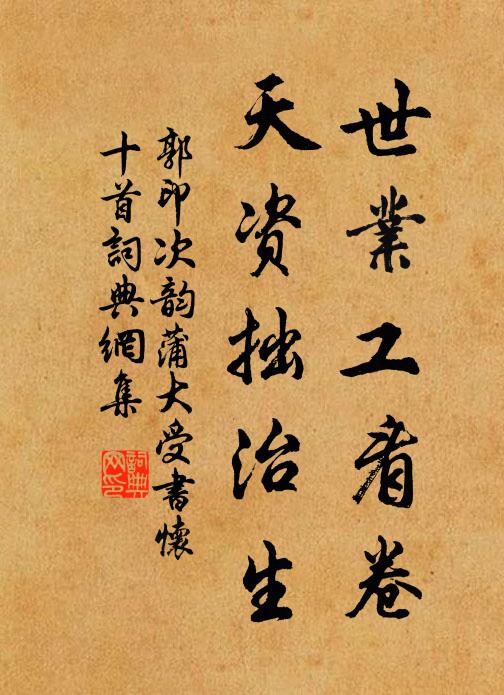 世業工看卷
天資拙治生
郭印次韵蒲大受書懷
十首詞典網集
詞典網印